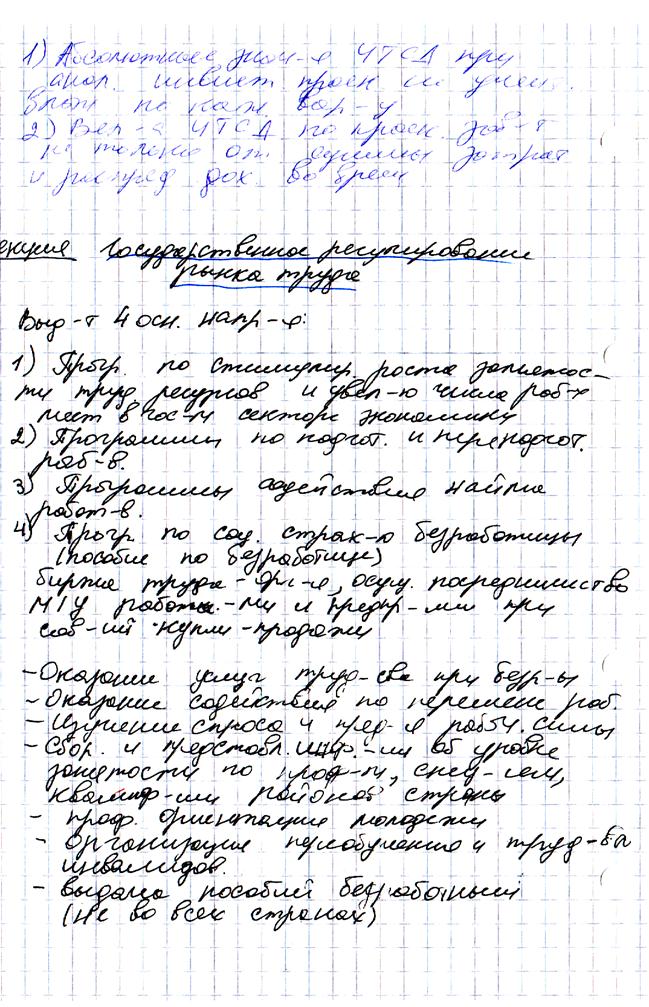 1) Абсолютное знач-е ЧТСД при
анал. инвест. проек. не учит.
влож. по каж. вар-у
2) Вел-а ЧТСД по проек. зав-т
не только от суммы затрат
и распред дох. во врем
екция Государственное регулирование
рынка труда
Выд-т 4 осн. напр-я:
1) Прогр. по стимулир. роста занятос-
ти труд. ресурсов и увел-ю числа раб-х
мест в гос-м секторе экономики
2) Программы по подгот. и переподгот.
раб-в.
3) Программы содействия найма
работ-в.
4) Прогр. по соц. страх-ю безработицы
(пособие по безработице)
биржа труда - орг-я, осущ. посредничество
м/у работн.-ми и предпр-ми при
сов-ии купли-продажи
- Оказание услуг труд-ва при безр-ы
- Оказание содействия по перемене раб.
- Изучение спроса и пред-я рабоч. силы
- Сбор. и представл. инф.-ии об уровне
занятости по проф-м, спец-тям,
квалиф-ии районов страны
- проф. ориентация молодежи
- организация переобучения и труд-ва
инвалидов.
- выдача пособий безработным
(не во всех странах)